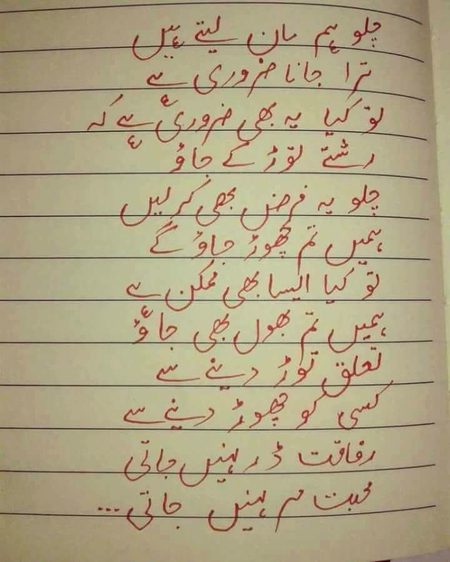 چلو ہم مان لیتے ہیں
ترا جانا ضروری ہے
تو کیا یہ بھی ضروری ہے کہ
رشتے توڑ کے جاؤ
چلو یہ فرض بھی کر لیں
ہمیں تم چھوڑ جاؤ گے
تو کیا ایسا بھی ممکن ہے
ہمیں تم بھول بھی جاؤ
تعلق توڑ دینے سے
کسی کو چھوڑ دینے سے
رفاقت ڈر نہیں جاتی
محبت مر نہیں جاتی...